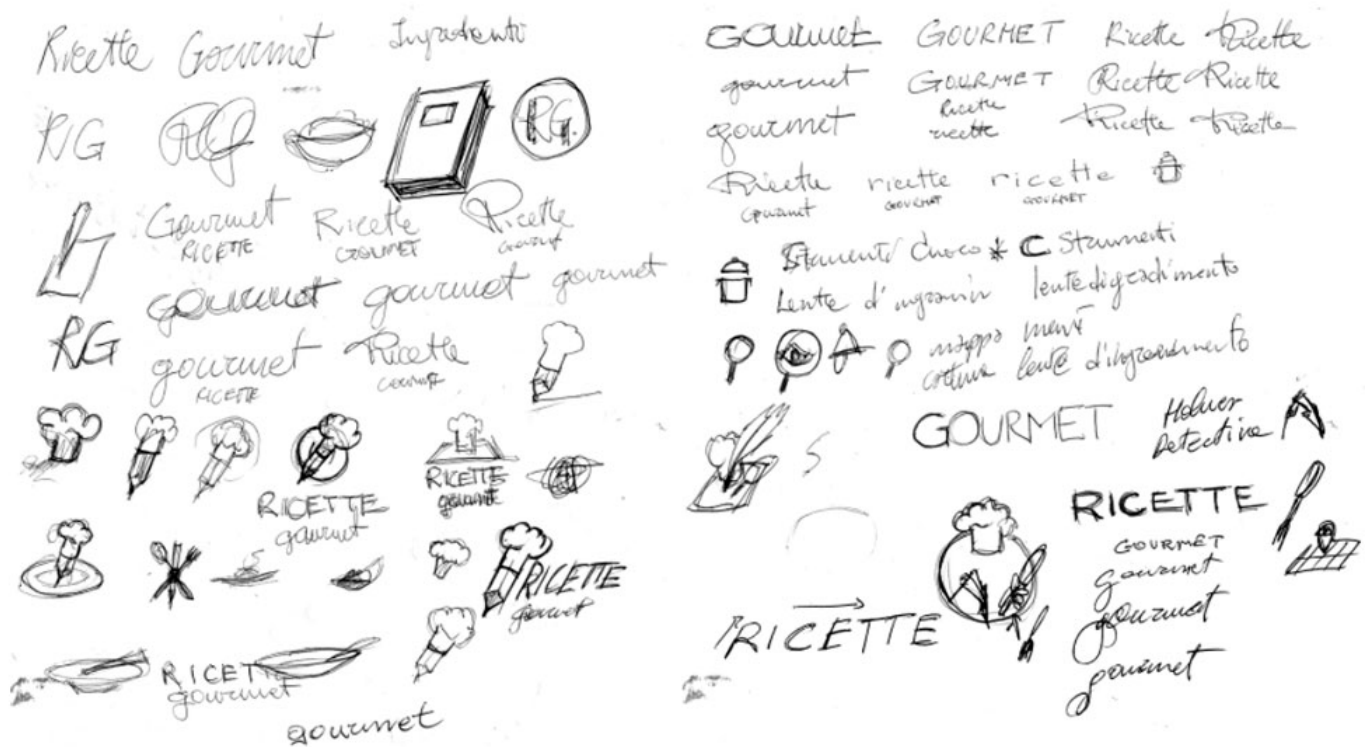 Ricette Gourmet Ingredienti
RG RG RG.
Gourmet Ricette Ricette
RICETTE GOURMET Gourmet
gourmet gourmet gourmet
RG gourmet Ricette
RICETTE Gourmet
RICETTE
gourmet
RICETTE
gourmet
RICETTE
gourmet
RICET
gourmet
gourmet
Gourmet GOURMET Ricette Ricette
gourmet GOURMET Ricette Ricette
Ricette
gourmet ricette Ricette Ricette
Ricette ricette ricette
Gourmet GOURMET GOURMET
Strumenti Cuoco * C Strumenti
Lente d' lente di gradimento
mappa menù
cottura lente d'ingradimento
GOURMET
Holmes
Detective
RICETTE
GOURMET
gourmet
gourmet
gourmet
RICETTE